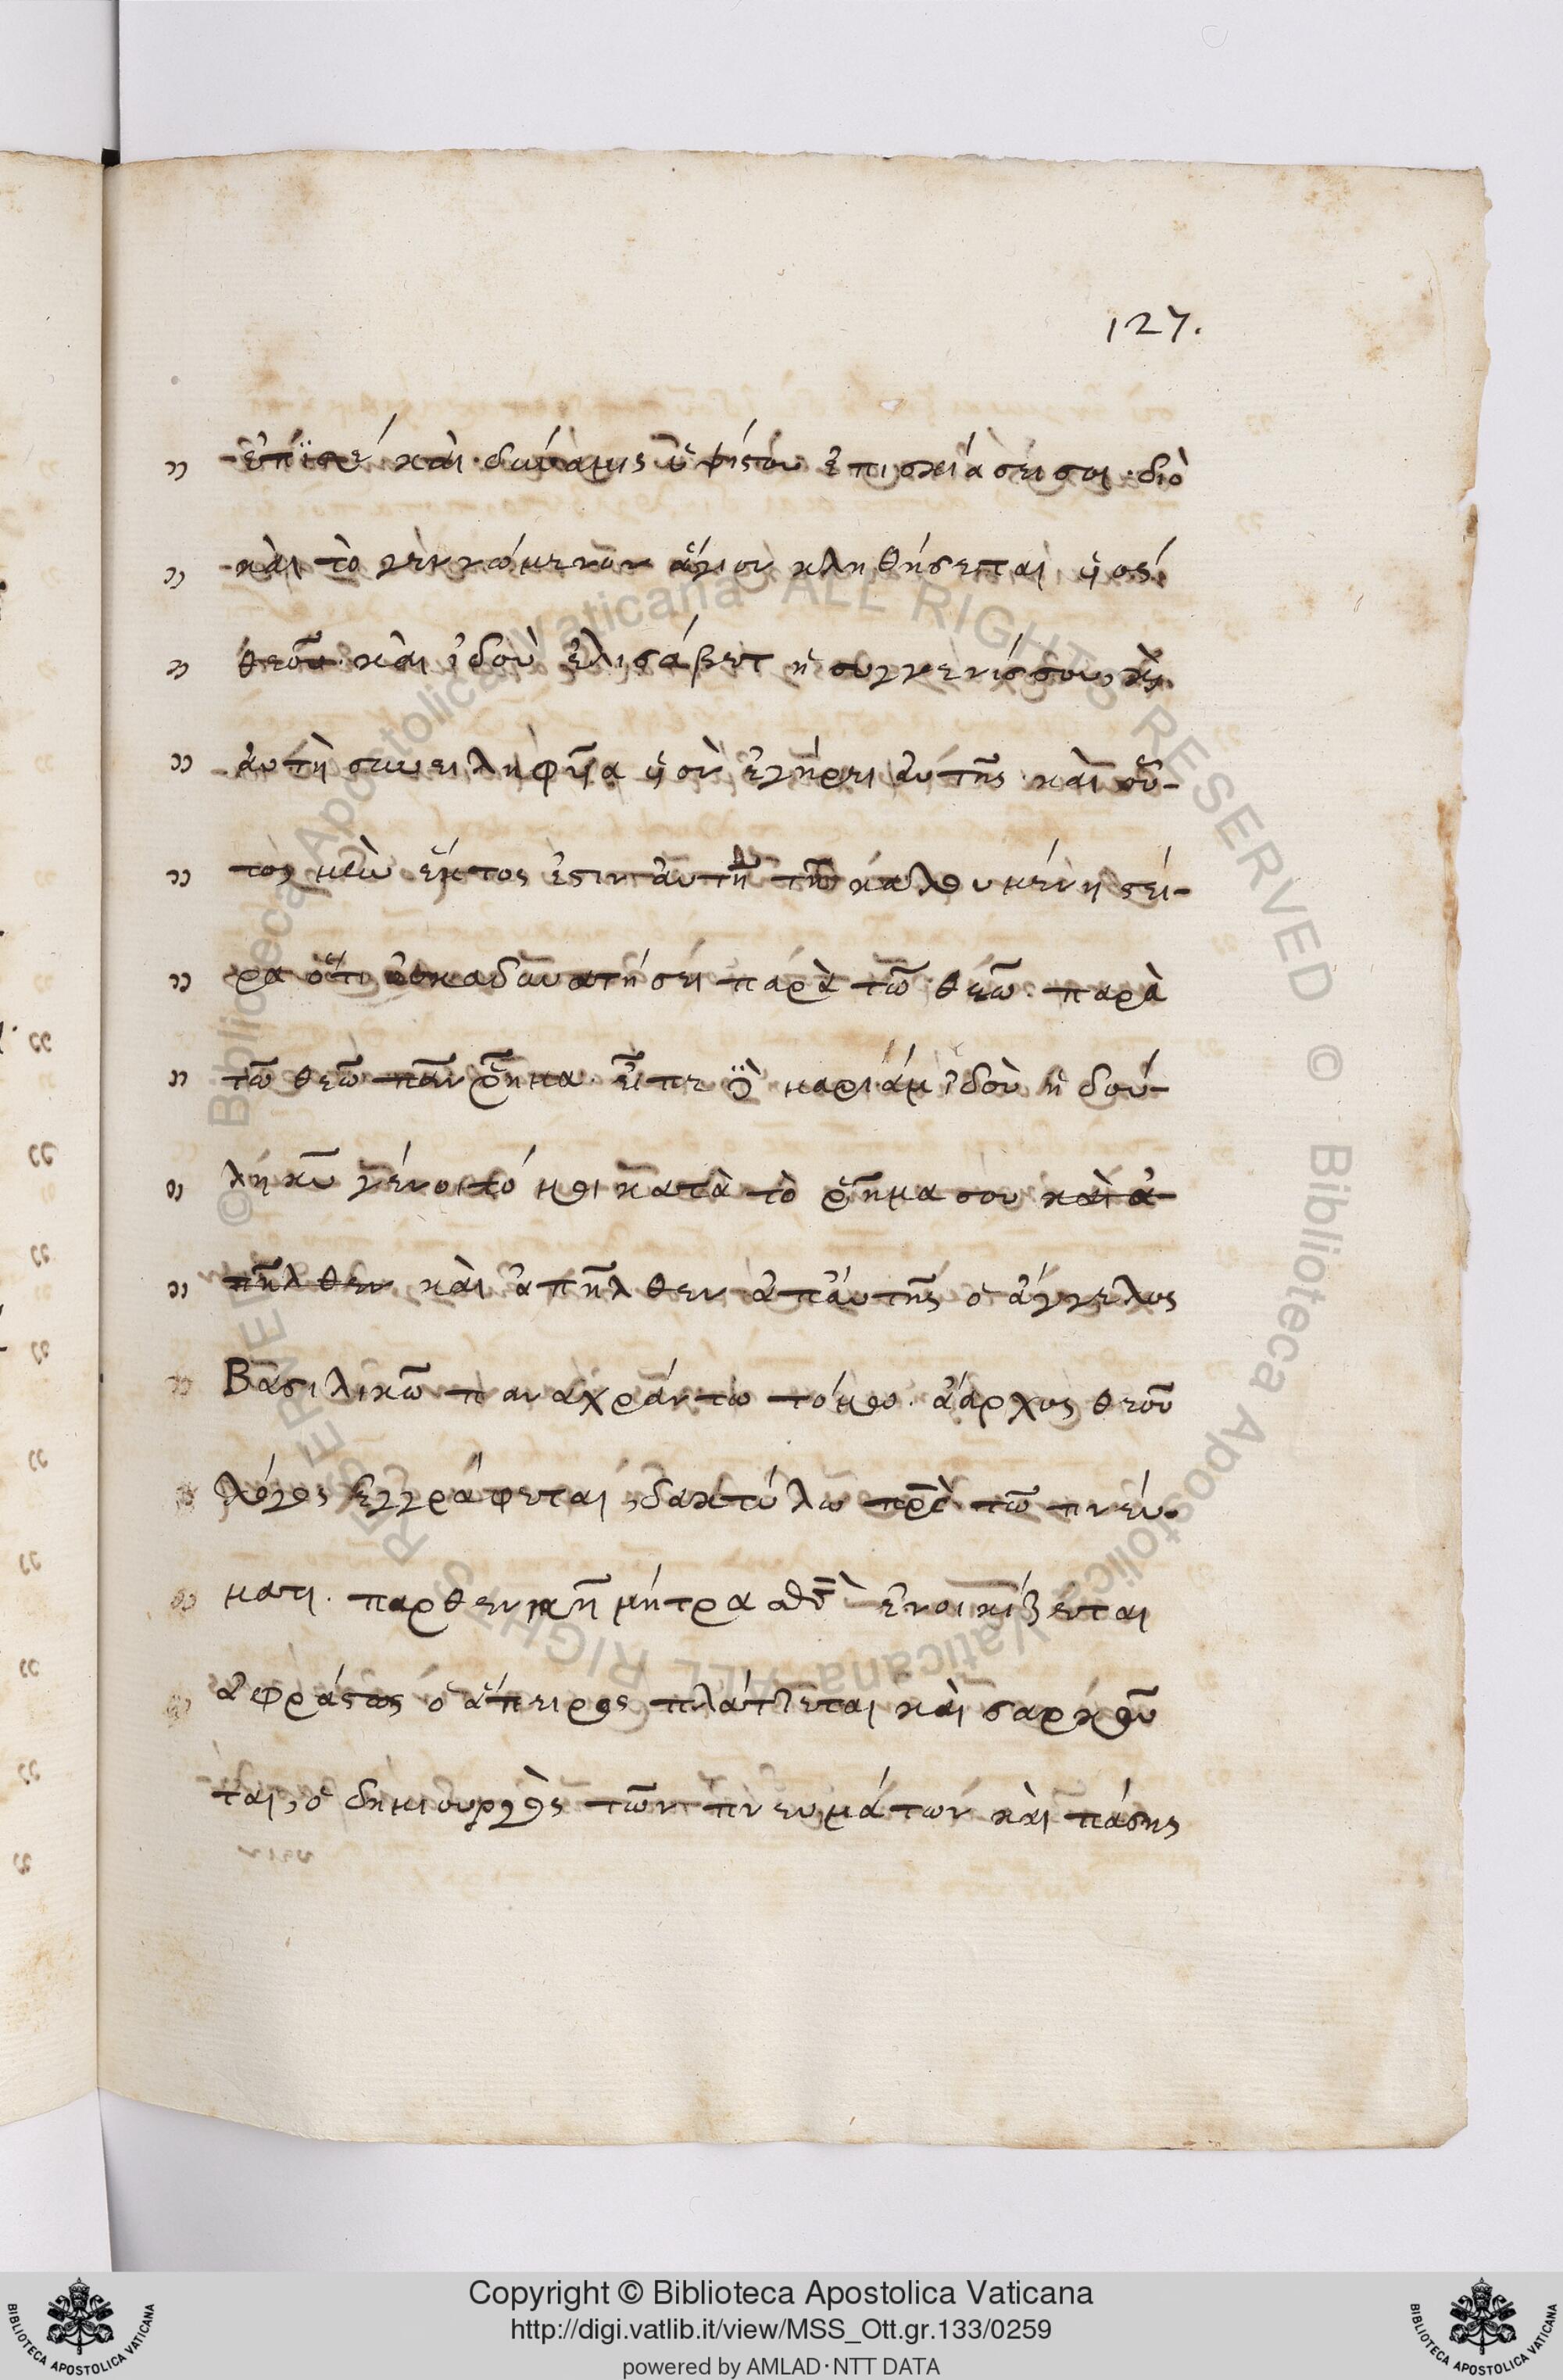 127.
ἐπίσέ καὶ δύναμις ὑψίστου ἐπισκιάσει σοι· διὸ
καὶ τὸ γεννώμενον ἅγιον κληθήσεται ϋἱὸς
θεοῦ· καὶ ἰδοὺ ἐλισάβετ ἡ συγγενίς σου, καὶ
ἀυτὴ συνειληφυῖα ϋἱὸν ἐν γήρει ἀυτῆς καὶ οὗ-
τος μὴν ἕκτος ἐστιν ἀυτῆ τῆ καλουμένη στεί-
ρα ὅτι οὐκ ἀδυνατήσει παρὰ τῶ θεῶ· παρὰ
τῶ θεῶ πᾶν ῥῆμα· εἶπε δὲ μαριάμ ἰδοὺ ἡ δού-
λη κυ γένοιτό μοι κατὰ τὸ ῥῆμα σου καὶ ἀ-
πῆλθεν καὶ ἀπῆλθεν ἀπ ἀυτῆς ὁ ἄγγελος
Βασιλικῶ παναχράντω τόμω· ἄαρχος θεοῦ
λόγος ἐγγράφεται, δακτύλω πρς τῶ πνεύ-
ματι· παρθενικῆ μήτρα ἐνοικίζεται
ἀφράστως ὁ ἄπειρος πλάττεται καὶ σαρκοῦ
ται, ὁ δημιουργὸς τῶν πνευμάτων καὶ πάσης
Copyright © Biblioteca Apostolica Vaticana
http://digi.vatlib.it/view/MSS_Ott.gr.133/0259
powered by AMLAD·NTT DATA
BIBLIOTECA APOSTOLICA VATICANA
BIBLIOTECA APOSTOLICA VATICANA
© Biblioteca Apostolica Vaticana ALL RIGHTS RESERVED
© Biblioteca Apostolica Vaticana ALL RIGHTS RESERVED